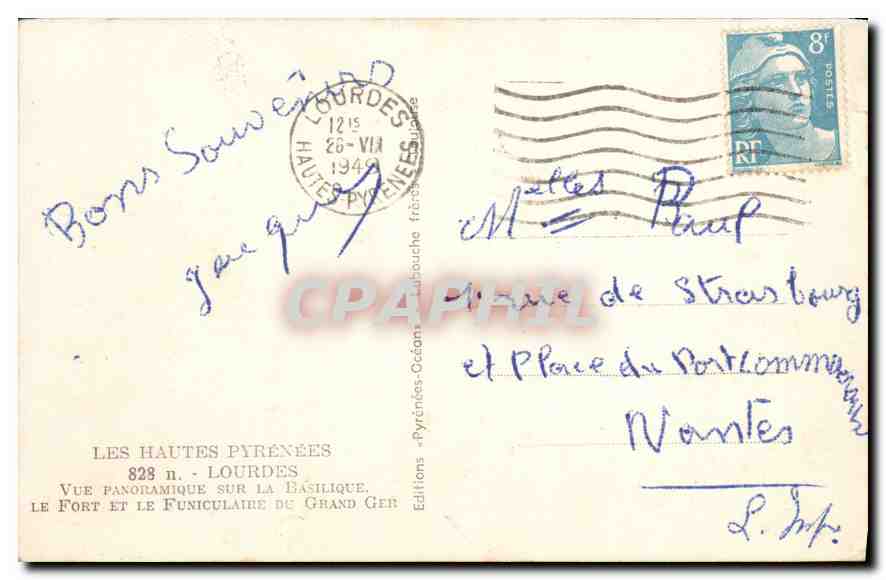 Bons Souvenir
Jacques
LOURDES
12 15
26-VII
1949
HAUTES-PYRENEES
8F
POSTES
RF
Melles Paul
rue de Strasbourg
et Place du Port Communeau
Nantes
L. Infre
CPAPHIL
Editions «Pyrénées-Océan» Labouche frères Toulouse
LES HAUTES PYRÉNÉES
828 n. - LOURDES
VUE PANORAMIQUE SUR LA BASILIQUE,
LE FORT ET LE FUNICULAIRE DU GRAND GER